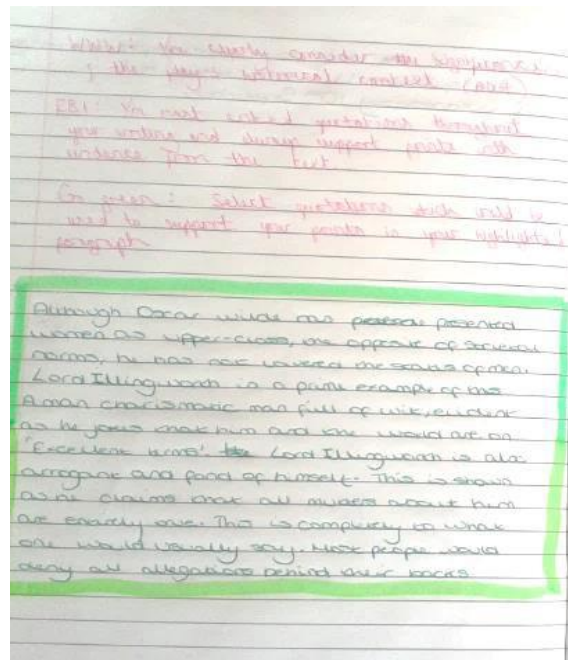 WWW: You clearly consider the significance
of the play's historical context (AO4)
EBI: You must embed quotations throughout
your writing and always support points with
evidence from the text.
Go green: Select quotations which could be
used to support your points in your highlighted
paragraph
Although Oscar Wilde has presented
women as upper-class, the opposite of societal
norms, he has not lowered the status of men.
Lord Illingworth is a prime example of this
A man charismatic man full of wit, evident
as he jokes that him and the world are on
'Excellent terms'. Lord Illingworth is also
arrogant and fond of himself. This is shown
as he claims that all about him
are entirely true. This is completely to what
one would usually say. Most people would
deny all allegations behind their backs